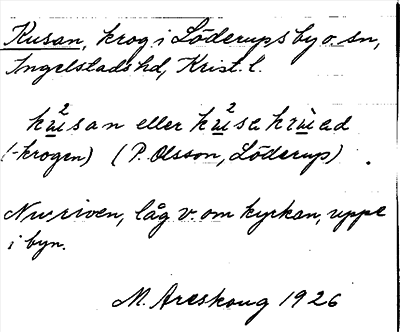 Kusan, krog i Löderups by o. sn,
Ingelstads hd, Krist. l.
k²u̲san eller k²u̲sa krù̲ad
(-krogen) (P. Olsson, Löderup).
Nu riven, låg v. om kyrkan, uppe
i byn.
M. Areskoug 1926